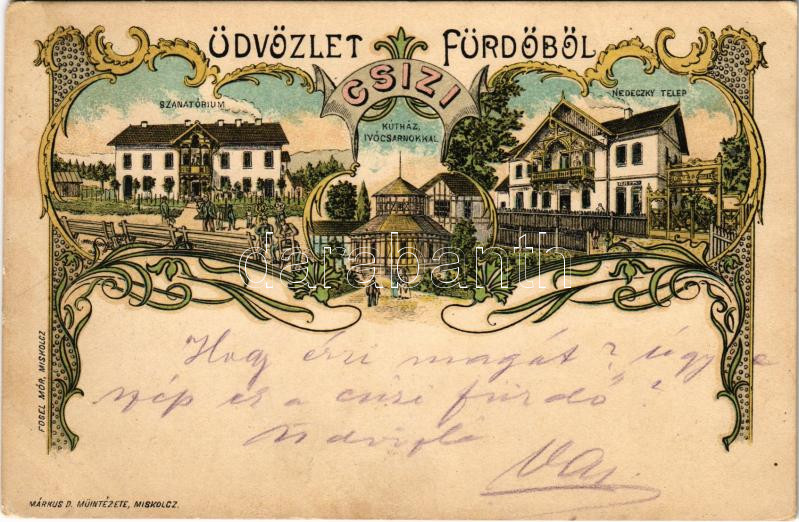 ÜDVÖZLET FÜRDŐBŐL
CSIZI
SZANATÓRIUM
KUTHÁZ,
IVÓCSARNOKKAL
NEDECZKY TELEP
darabanth
Hogy érzi magát? úgy e
szép ez a csizi fürdő?
FOGEL MÓR, MISKOLCZ
MÁRKUS D. MŰINTÉZETE, MISKOLCZ.